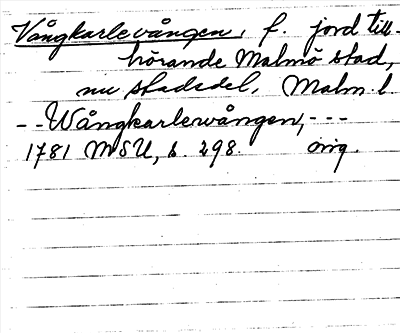 Vångkarlevången, f. jord till-
hörande Malmö stad,
nu stadsdel, Malm. l.
--Wångkarlewången,---
1781 MSU, s. 298. orig.